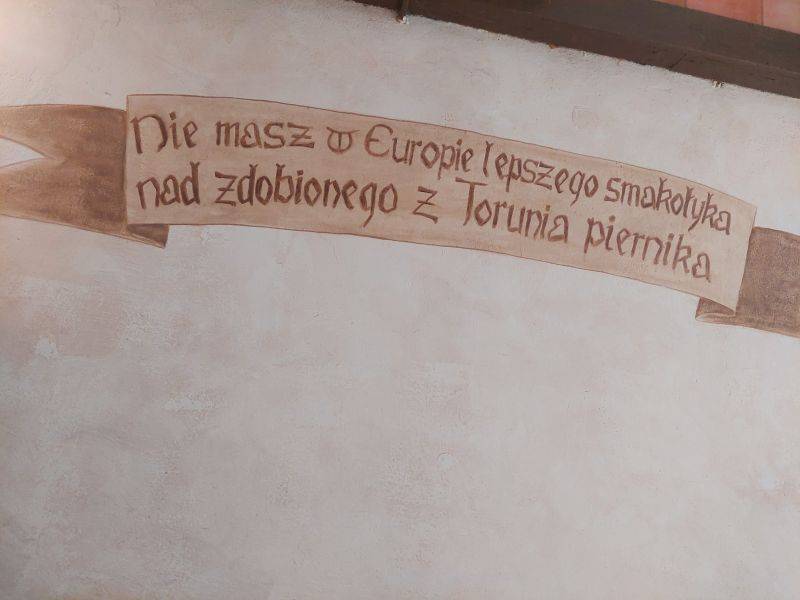 Nie masz w Europie lepszego smakołyka
nad zdobionego z Torunia piernika